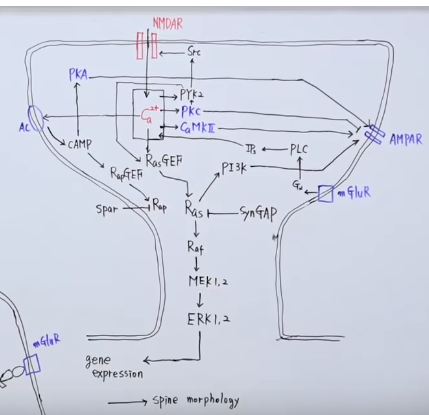 NMDAR
Src
PKA
PYK2
Ca2+
PKC
CaMKII
AC
AMPAR
cAMP
IP3
PLC
RasGEF
PI3K
RapGEF
Gq
mGluR
Spar
Rap
Ras
SynGAP
Raf
MEK1,2
ERK1,2
mGluR
gene
expression
spine morphology